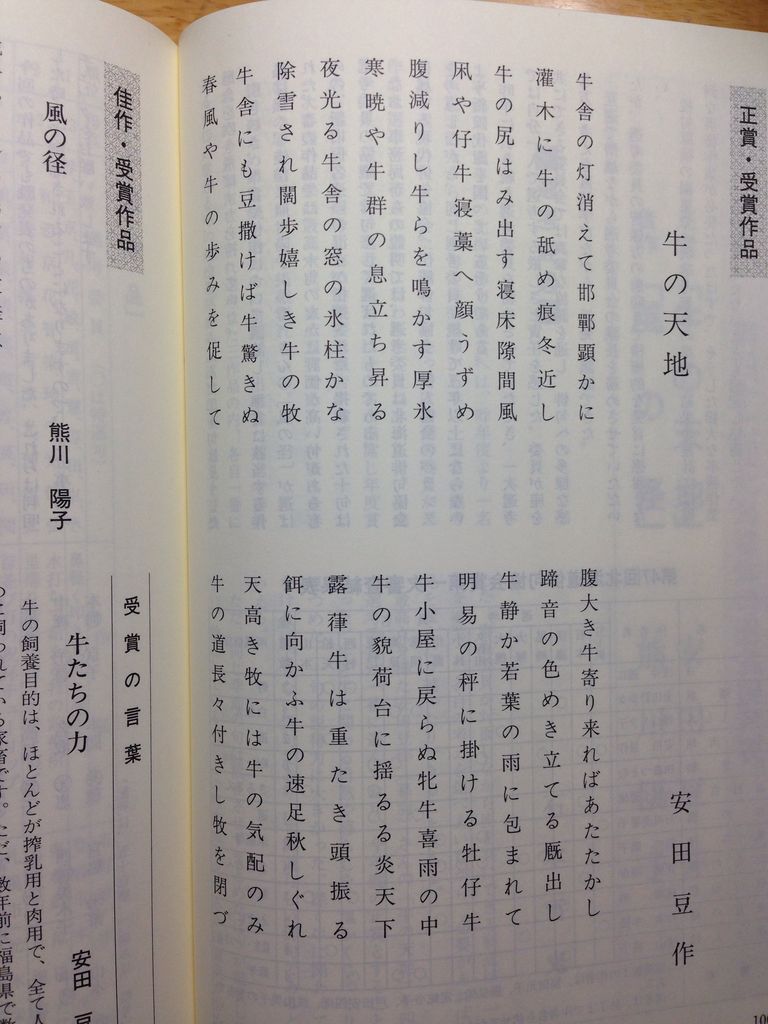 正賞・受賞作品
牛の天地
安田豆作
牛舎の灯消えて邯鄲顕かに
灌木に牛の舐め痕冬近し
牛の尻はみ出す寝床隙間風
凩や仔牛寝藁へ顔うずめ
腹減りし牛らを鳴かす厚氷
寒暁や牛群の息立ち昇る
夜光る牛舎の窓の氷柱かな
除雪され闊歩嬉しき牛の牧
牛舎にも豆撒けば牛驚きぬ
春風や牛の歩みを促して
腹大き牛寄り来ればあたたかし
蹄音の色めき立てる厩出し
牛静か若葉の雨に包まれて
明易の秤に掛ける牡仔牛
牛小屋に戻らぬ牝牛喜雨の中
牛の貌荷台に揺るる炎天下
露葎牛は重たき頭振る
餌に向かふ牛の速足秋しぐれ
天高き牧には牛の気配のみ
牛の道長々付きし牧を閉づ
佳作・受賞作品
風の径
熊川 陽子
受賞の言葉
牛たちの力
安田 豆
牛の飼養目的は、ほとんどが搾乳用と肉用で、全て人